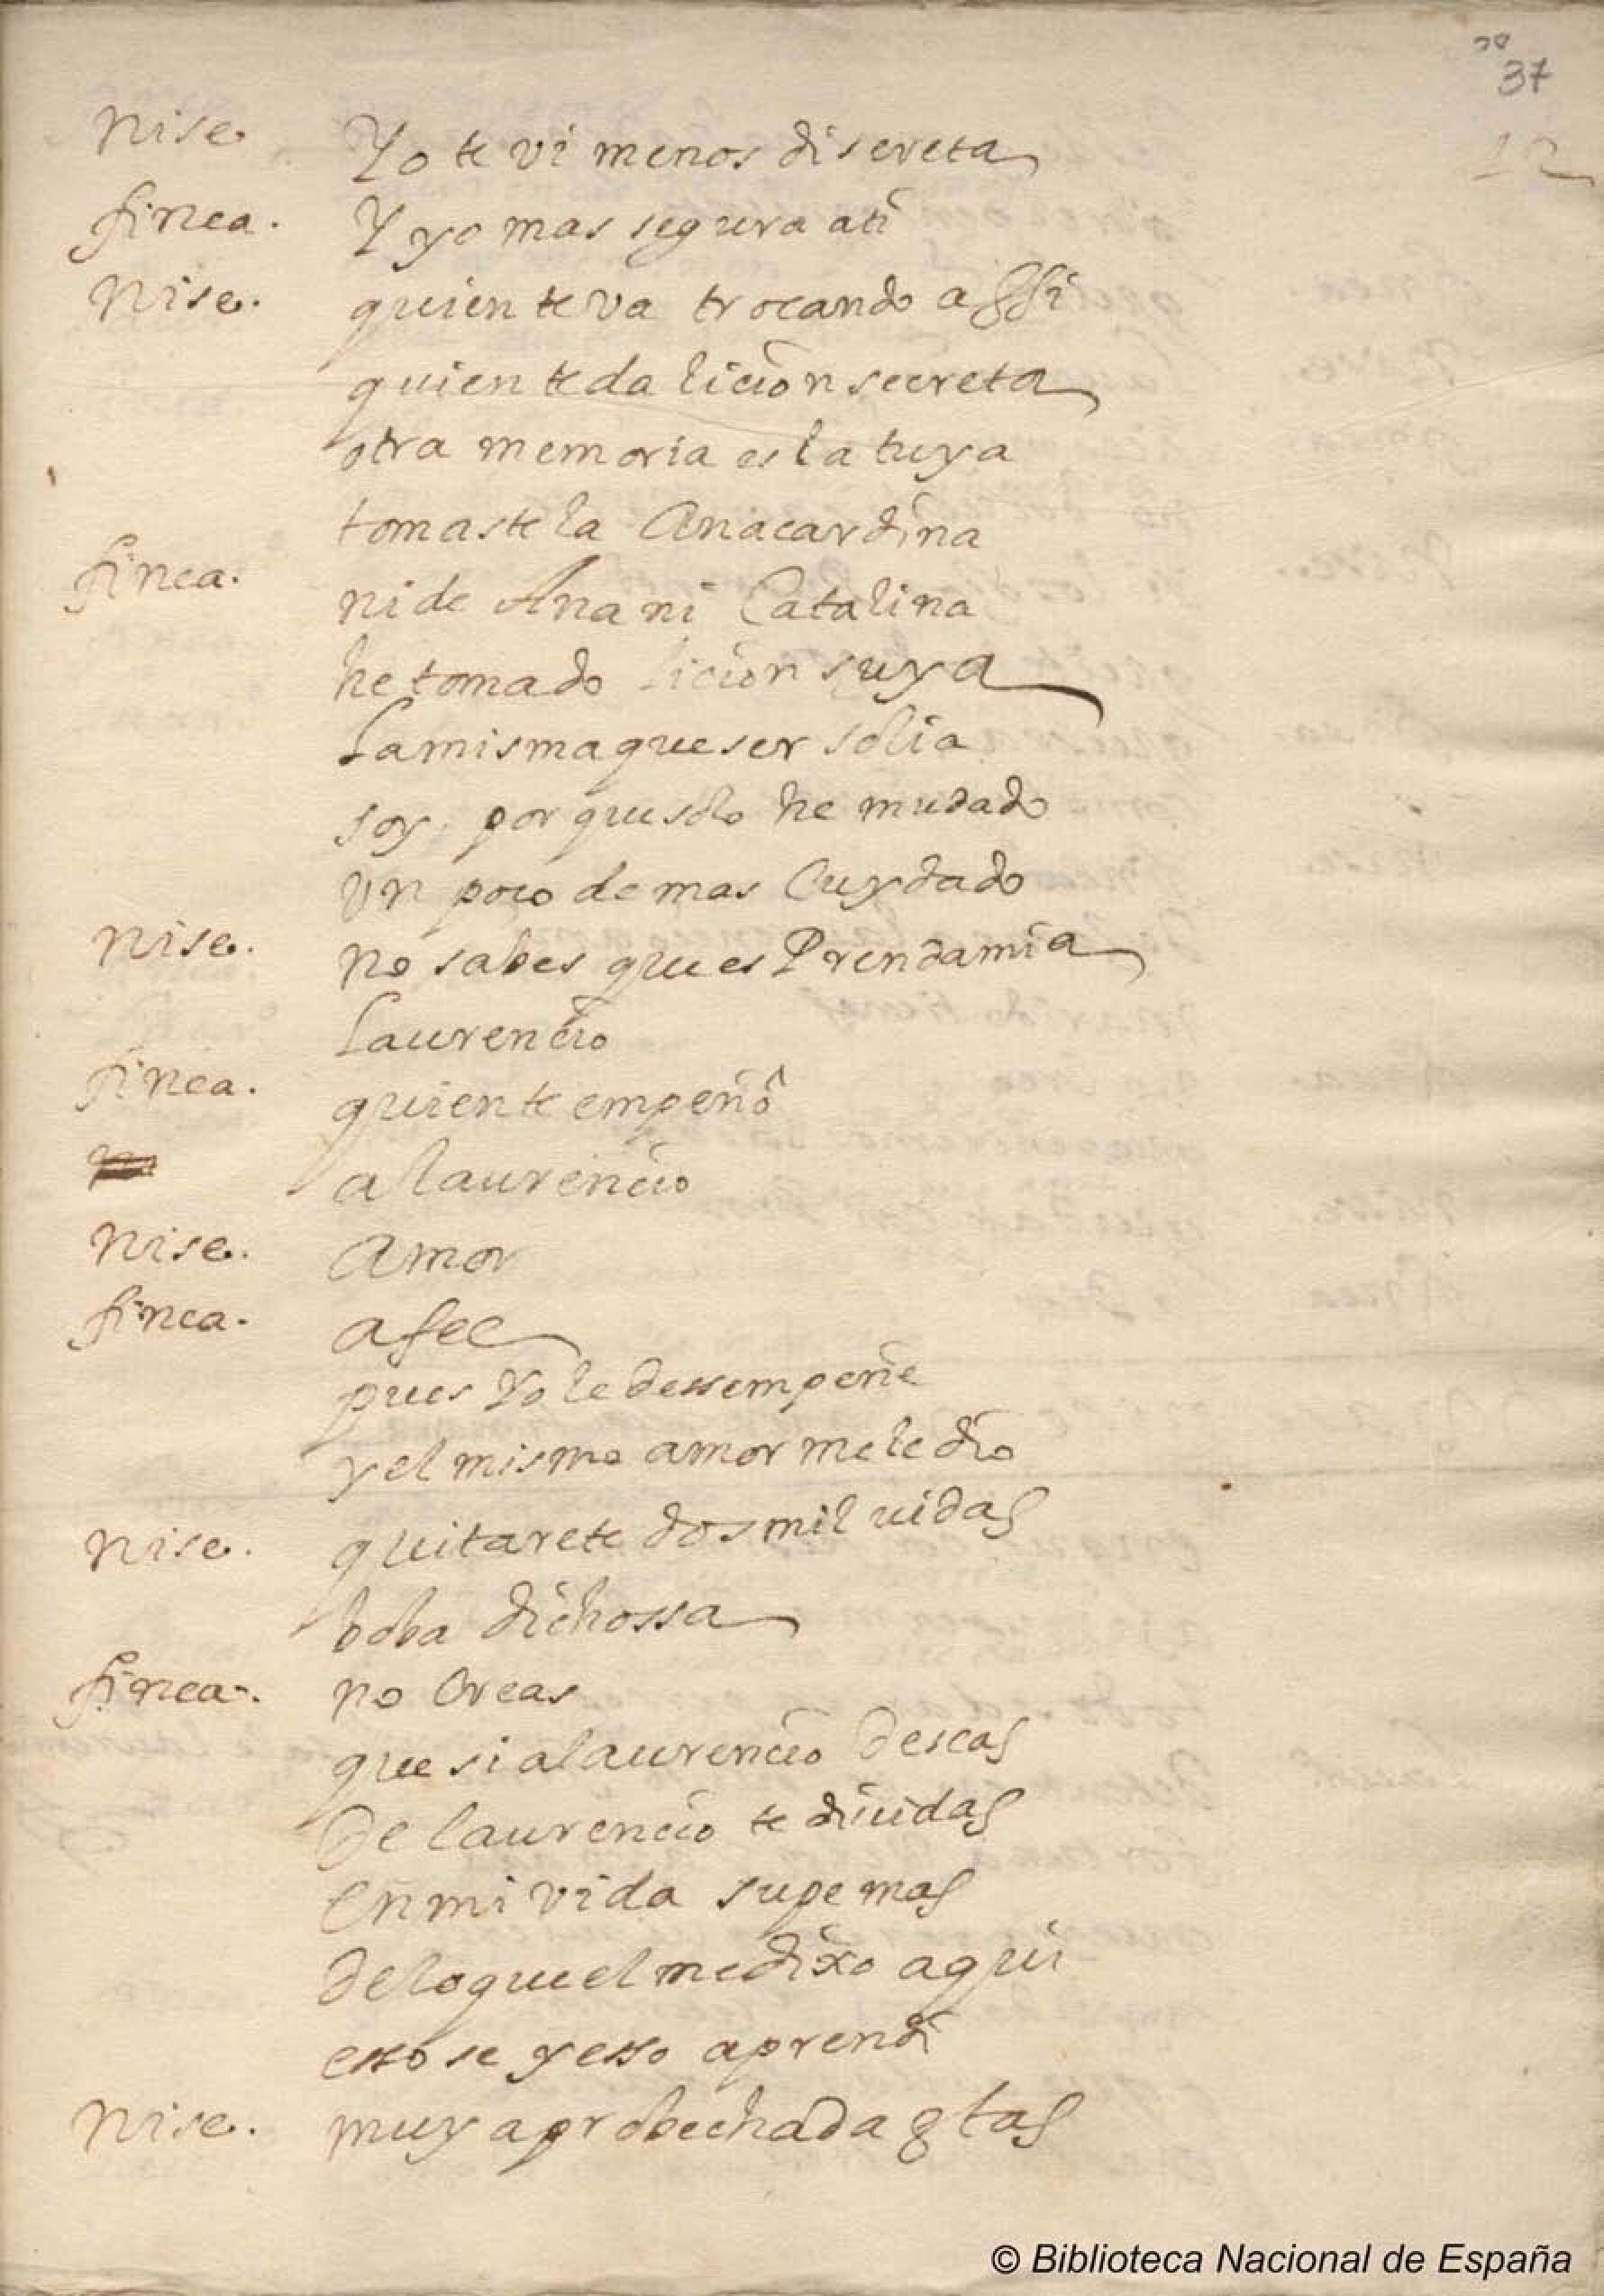 37
12
Nise. Yo te vi menos discreta
finea. Y yo mas segura ati
Nise. quien te va trocando assi
quien te da licion secreta
otra memoria es la tuya
tomaste la Anacardina
finea. ni de Ana ni Catalina
he tomado licion suya
La misma que ser solia
soy, porque solo he mudado
Vn poco de mas Cuydado
Nise. no sabes que es Prenda mia
Laurencio
finea. quien te empeñó
a laurencio
Nise. Amor
finea. afee
pues Yo le dessempeñe
y el mismo amor me le dio
Nise. quitarete dos mil uidas
boba dichossa
finea. no Creas
que si a laurencio deseas
de laurencio te diuidas
en mi vida supe mas
de lo que el me dixo aqui
esso se y esso aprendi
Nise. muy aprobechada estas
© Biblioteca Nacional de España